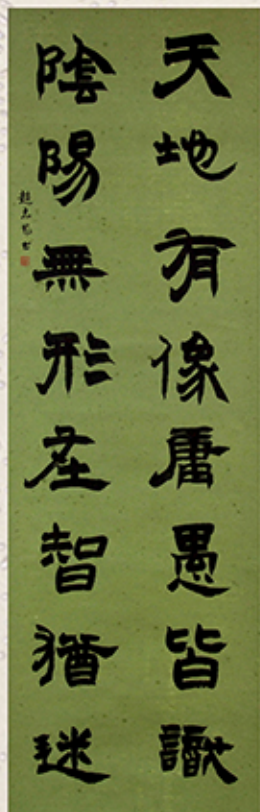 天地有像庸愚皆識
陰陽無形在智猶迷
趙志書